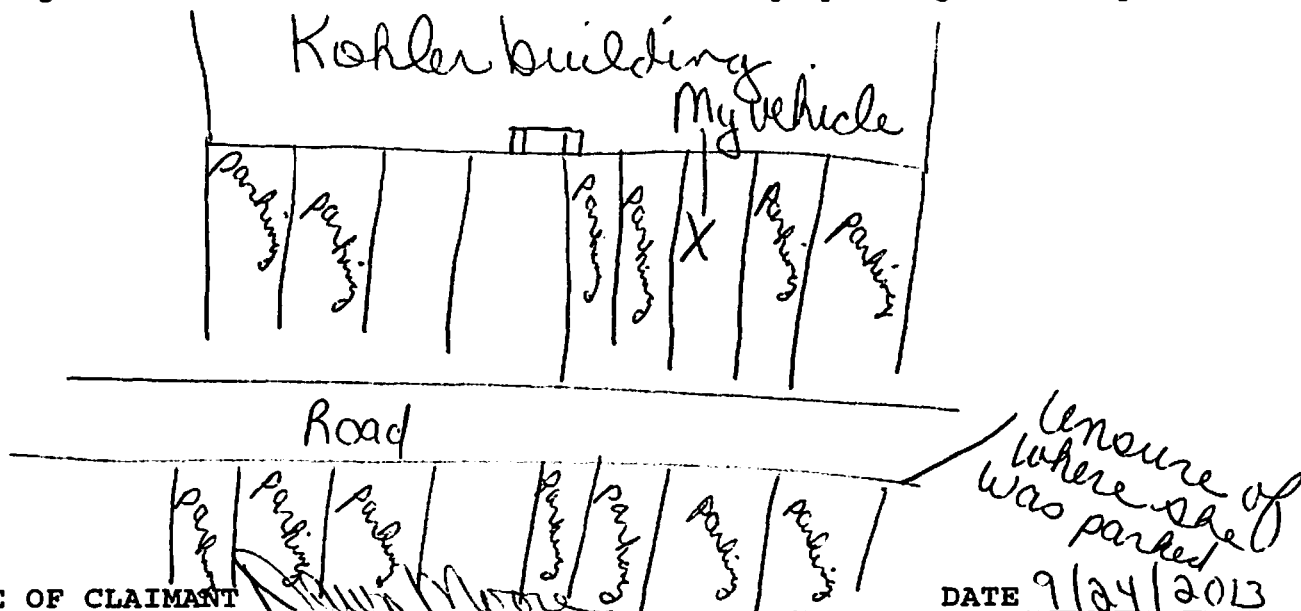 Kohler building
My vehicle
parking
parking
parking
parking
X
parking
parking
Road
Unsure of
where she
was parked
parking
parking
parking
parking
parking
parking
parking
E OF CLAIMANT
Moore
DATE 9/24/2013